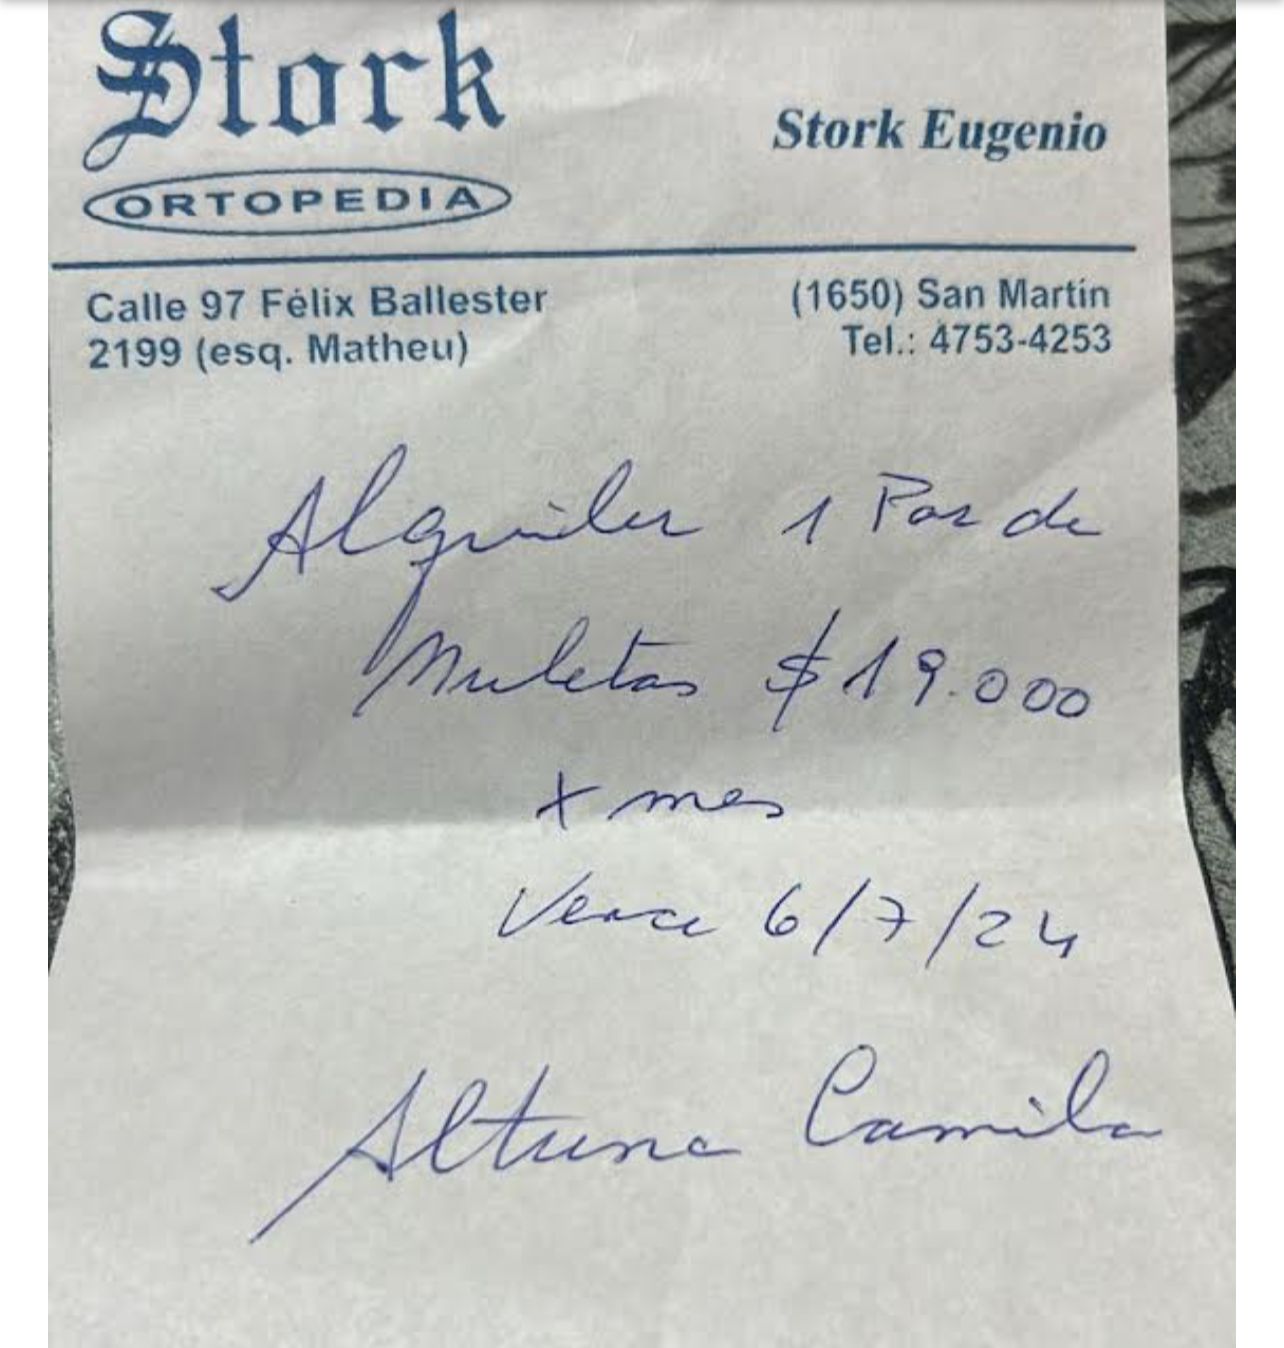 Stork
Stork Eugenio
ORTOPEDIA
Calle 97 Félix Ballester
2199 (esq. Matheu)
(1650) San Martín
Tel.: 4753-4253
Alquiler 1 Par de
Muletas $ 19.000
x mes
Vence 6/7/24
Altuna Camila